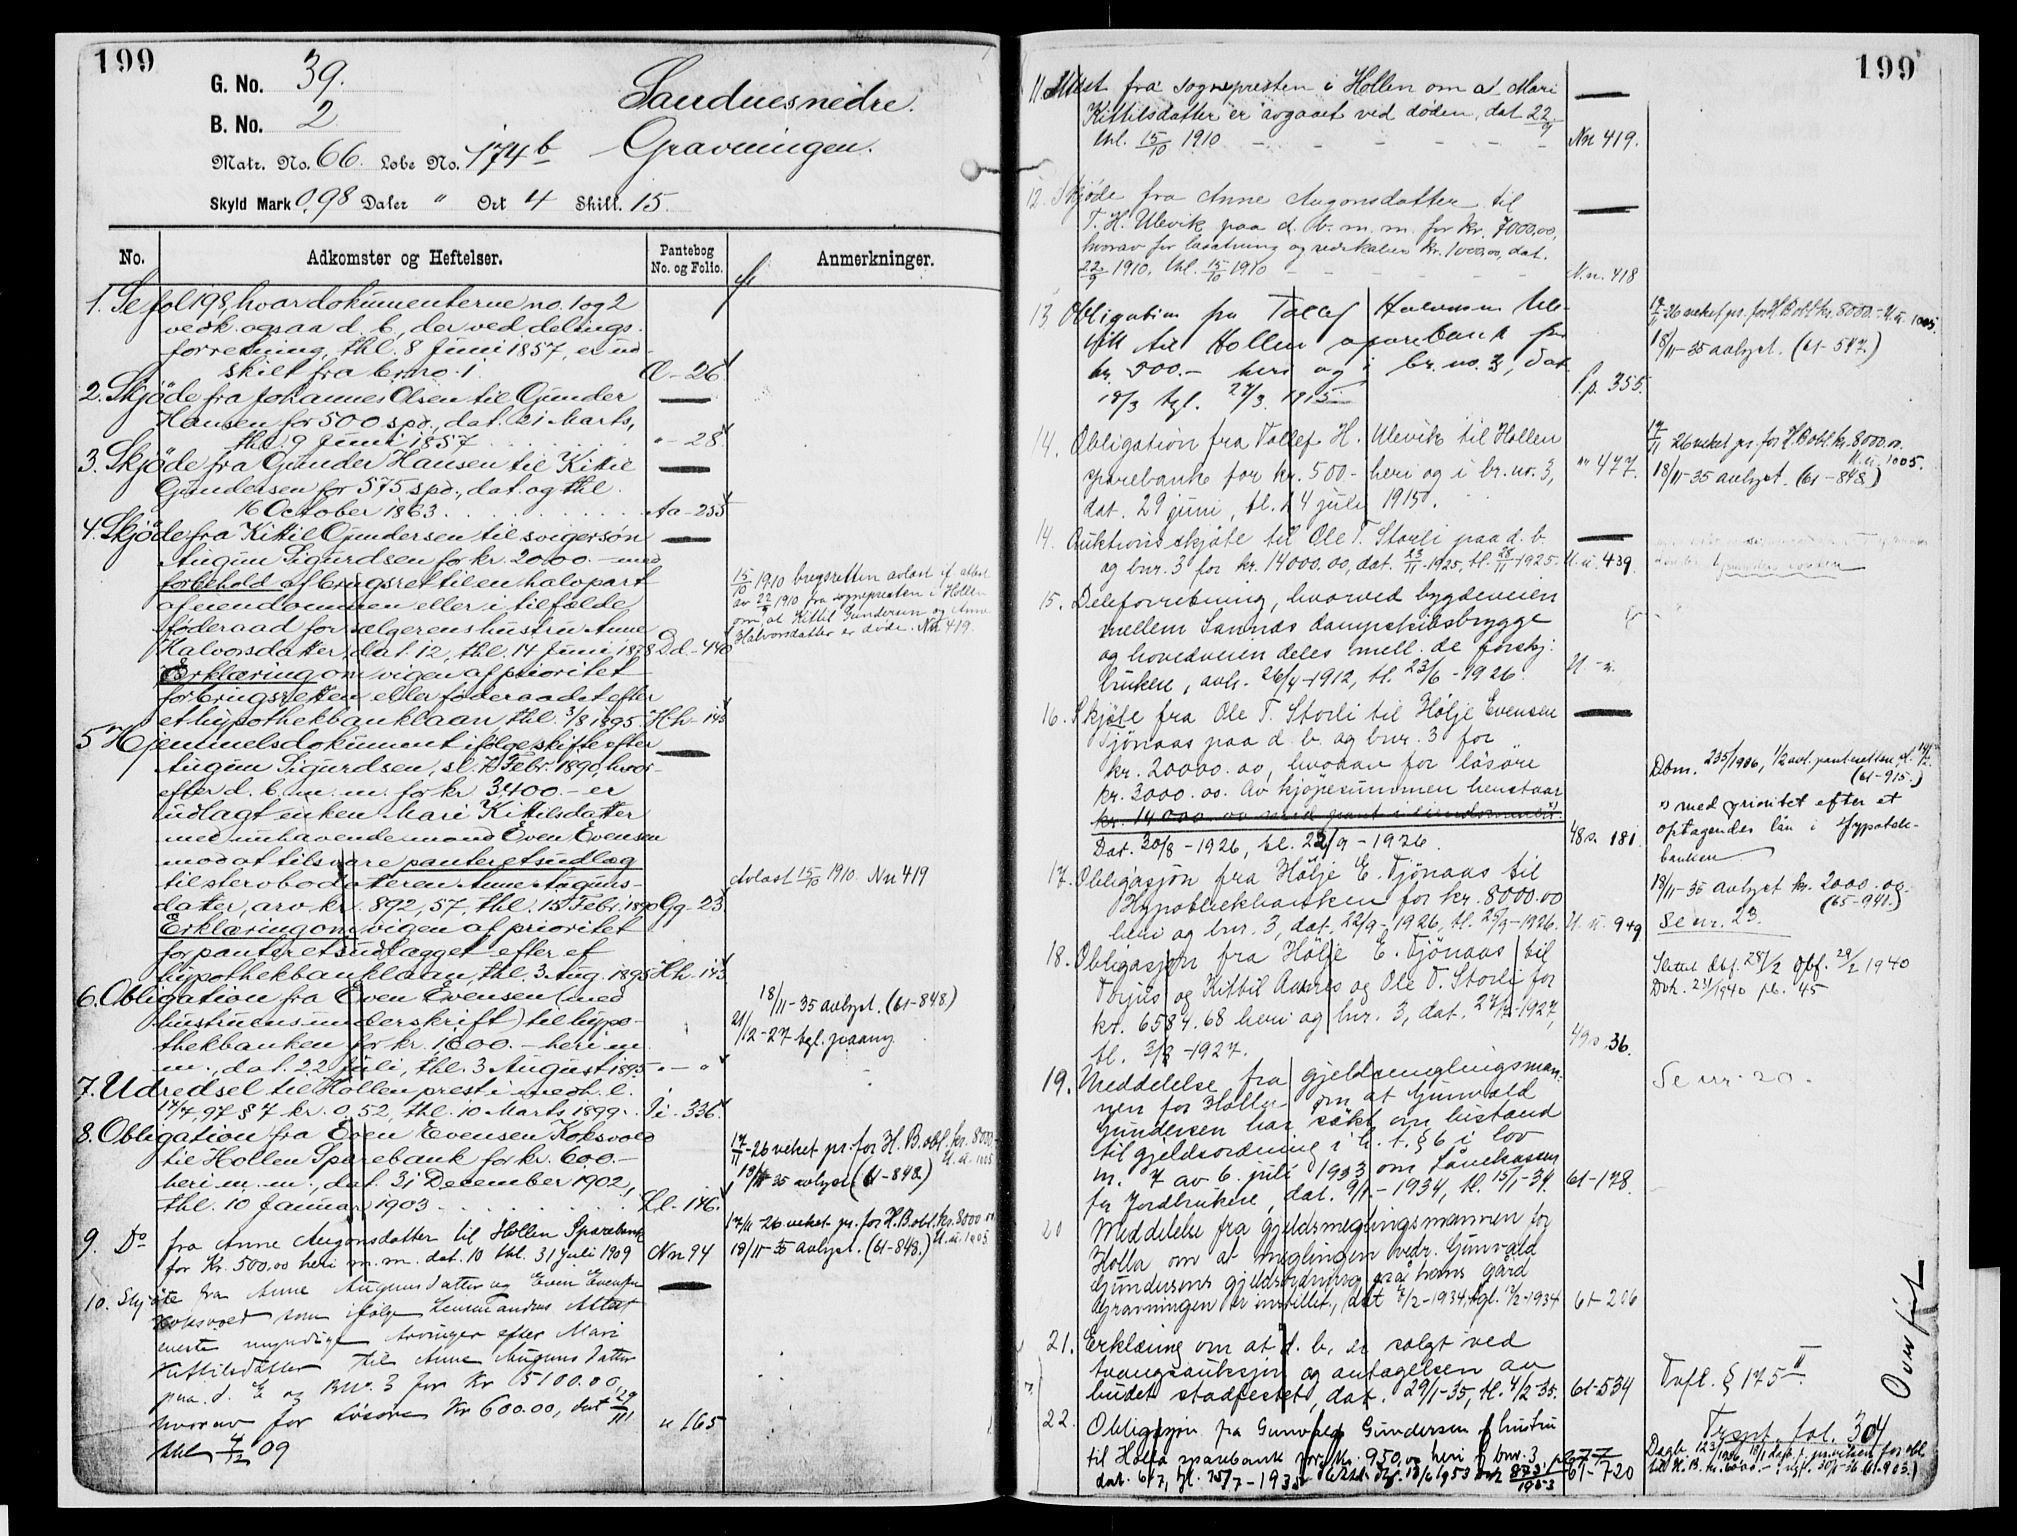 199
G. No. 39.
B. No. 2
Matr. No. 66. Løbe No. 174 b
Skyld Mark 0,98 Daler " Ort 4 Skill. 15.
Sandnesnedre.
Gravningen.
No. Adkomster og Heftelser. Pantebog No. og Folio. Anmerkninger.
1. Se fol 198, hvor dokumenterne no. 1 og 2
vedk. ogsaa d. b., der ved delings-
forretning, thl. 8 Juni 1857, er ud-
skilt fra br. no. 1. C - 26
2. Skjöde fra Johannes Olsen til Gunder
Hansen for 500 spd., dat. 21 Marts,
thl. 9 Juni 1857 " - 28
3. Skjöde fra Gunder Hansen til Kittil
Gundersen for 575 spd., dat. og thl.
16 October 1863. Aa - 255
4. Skjöde fra Kittil Gundersen til svigersön
Augun Sigurdsen for kr. 2000.- med
forbehold af brugsret til en halvpart
af eiendommen eller i tilfælde
föderaad for sælgerens hustru Anne
Halvorsdatter, dat. 12, thl. 14 Juni 1878 Dd - 440
15/10 1910 brugsretten avlest if. attest
av 22/9 1910 fra sognepresten i Hollen
om at Kittil Gundersen og Anne
Halvorsdatter er døde. Nn 419.
Erklæring om vigen af prioritet
for brugsretten eller föderaadet efter
et hypothekbanklaan, thl. 3/8 1895. Hh - 143
5 Hjemmelsdokument ifölge skifte efter
Augun Sigurdsen, sl. 7 Febr. 1890, hvor-
efter d. b. m. m. for kr. 3400.- er
udlagt enken Mari Kittilsdatter
med nuhavende mand Even Evensen
mod at tilsvare panteretsudlæg
til stervbodatteren Anne Auguns-
datter, arv kr. 892,57, thl. 15 Febr. 1890 Gg - 23
Avlest 15/10 1910. Nn 419
Erklæring om vigen af prioritet
for panteretsudlægget efter et
hypothekbanklaan, thl. 3 Aug. 1895 Hh - 143
6. Obligation fra Even Evensen (med
hustruens underskrift) til hypo-
thekbanken for kr. 1600.- heri m.
m., dat. 22 juli, thl. 3 August 1895 " - "
18/11-35 avlyst. (61-848)
21/12-27 tgl. paany
7. Udredsel til Hollen prest i medh. l.
14/7, 97 § 7 kr. 0,52, thl. 10 Marts 1899. Ii - 336
8. Obligation fra Even Evensen Koksvold
til Hollen Sparebank for kr. 600.-
heri m. m., dat. 31 December 1902,
thl. 10 Januar 1903 Ll - 146
17/11-26 veket pr. for H. B. obl. kr. 8000.-
U. u. 1005
18/11-35 avlyst (61-848)
9. Do fra Anne Augonsdatter til Hollen Sparebank
for Kr. 500,00 heri m. m. dat. 10 thl. 31 juli 1909 Nn 94
17/11-26 veket pr. for H. B. obl. kr. 8000.00.
U. u. 1005
18/11-35 avlyst. (61-848.)
10. Skjöte fra Anne Augunsdatter og Even Evensen
Koksvold som ifølge Lensmandens Attest
eneste myndige Arvinger efter Mari
Kittilsdatter til Anne Augunsdatter
paa d. E og Bno. 3 for Kr 5100.00
hvorav for Løsøre Kr 600.00, dat 29/11
thl 4/12 09 " 165
199
11 Attest fra sognepresten i Hollen om at Mari
Kittilsdatter er avgaaet ved døden, dat. 22/9
thl. 15/10 1910 Nn 419.
12. Skjøde fra Anne Augonsdatter til
T. H. Ulevik paa d. b. m. m. for Kr. 7000.00,
hvorav for besætning og redskaber kr. 1000,00, dat.
22/9 1910, thl. 15/10 1910 N. n. 418
13 Obligation fra Tollef Halvorsen Ule-
vik til Hollen sparebank for
kr. 500.- heri og i br. no. 3, dat
18/3 tgl. 27/3 1915 P.p. 355
17/11-26 veket pr. for H B obl kr. 8000.- U. u. 1005.
18/11-35 avlyst. (61-847)
14. Obligation fra Tollef H. Ulevik til Hollen
sparebank for kr. 500.- heri og i br. no. 3,
dat. 29 juni, tl. 14 juli 1915. " 477.
17/11 26 veket pr. for H B obl. kr. 8000.00.
U. u. 1005.
18/11-35 avlyst. (61-848)
14. Auktionsskjøte til Ole T. Storli paa d. b.
og bnr. 3 for kr. 14000.00, dat. 23/11-1925, tl. 28/11-1925. U. u. 439
15. Deleforretning, hvorved bygdeveien
mellem Sannes dampskibsbrygge
og hovedveien deles mell. de forskj.
brukere, avh. 26/4-1912, tl. 23/6-1926 U - u.
16. Skjøte fra Ole T. Storli til Hølje Evensen
Tjönaas paa d. b. og bnr. 3 for
kr. 20000.00, hvorav for løsøre
kr. 3000.00. Av kjøpesummen henstaar
kr. 14000.00 med pant i eiendommen x)
Dat. 30/8-1926, tl. 22/9-1926. 48 s. 181
Dbm. 235/1906, 1/2 avl. panteretten
(61-915.)
x) med prioritet efter et
optagendes lån i Hypotek-
banken
17. Obligasjon fra Hølje E. Tjönaas til
Hypothekbanken for kr. 8000.00
heri og bnr. 3, dat. 22/9-1926, tl. 25/9-1926. U. u. 949
18/11-35 avlyst kr. 2000.00.
(65-941.)
Se nr. 23.
18. Obligasjon fra Hølje E. Tjönaas til
Torjus og Kittil Aasnes og Ole T. Storli for
kr. 6584.68 heri og bnr. 3, dat. 27/7-1927,
tl. 3/8-1927. 49 s. 36.
Slettet dbf. 28/2 dpf. 29/2 1940
Dok. 231/1940 pb. 45
19. Meddelelse fra gjeldsmeglingsman-
nen for Holla om at Gunvald
Gundersen har søkt om bistand
til gjeldsordning i h. t. § 6 i lov
nr. 7 av 6. juli 1933 om Lånekassen
for Jordbrukere, dat. 9/1-1934, tl. 15/1-34. 61-178.
Se nr. 20.
20 Meddelelse fra Gjeldsmeglingsmannen for
Holla om at meglingen vedr. Gunvald
Gundersens gjeldsordning på hans gård
Gravningen er innstillet, dat 8/2-1934, tgl. 12/2-1934 61-206
21. Erklæring om at d. b. er solgt ved
tvangsauksjon og antagelsen av
budet stadfestet, dat. 29/1-35, tl. 4/2-35. 61-534
Tvfl. § 175 II.
22. Obligasjon fra Gunvald Gundersen og hustru
til Holla sparebank for kr. 950,00 heri og bnr. 3.
dat. 6/7, tgl. 15/7-1935 61-720
Trspt fol. 304
Over frit